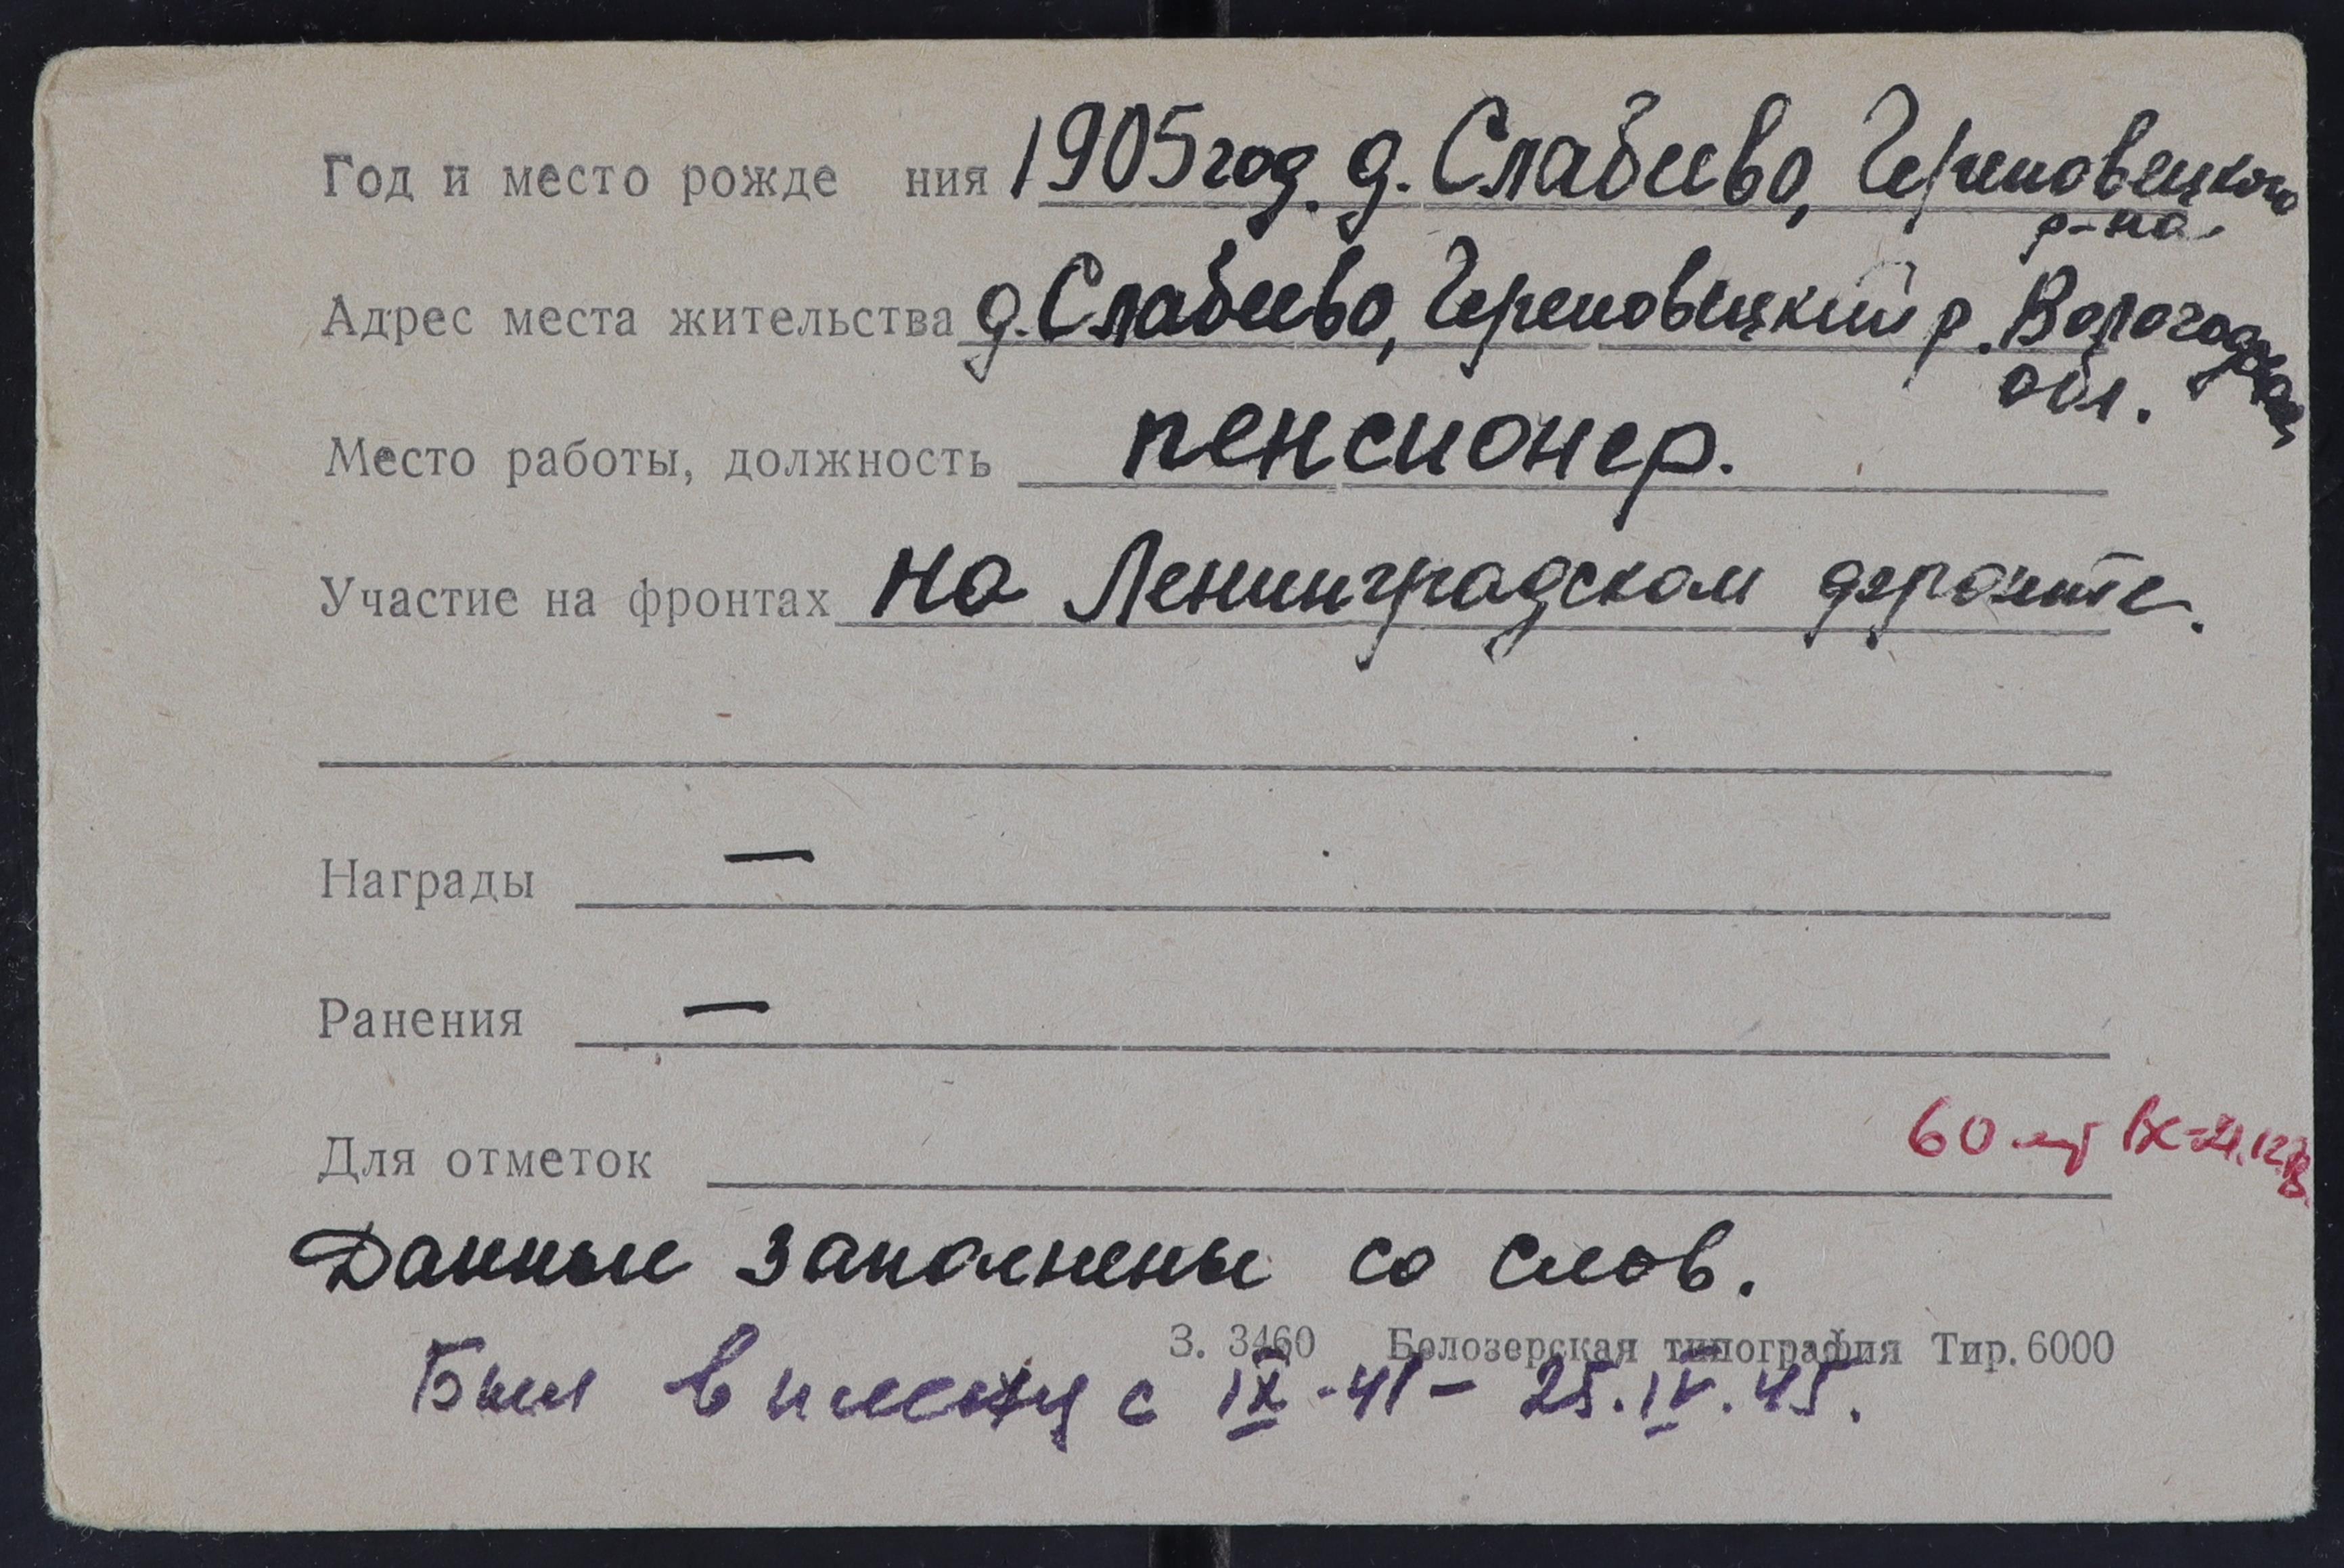 Год и место рожде ния 1905 год. д. Слабеево, Череповецкого
р-на
Адрес места жительства д. Слабеево, Череповецкий р. Вологодская
обл.
Место работы, должность пенсионер.
Участие на фронтах На Ленинградском фронте.
Награды —
Ранения —
Для отметок 60 лет
Данные заполнены со слов.
З. 3460 Белозерская типография Тир. 6000
Был в плену с IX-41 – 25.IV.45.